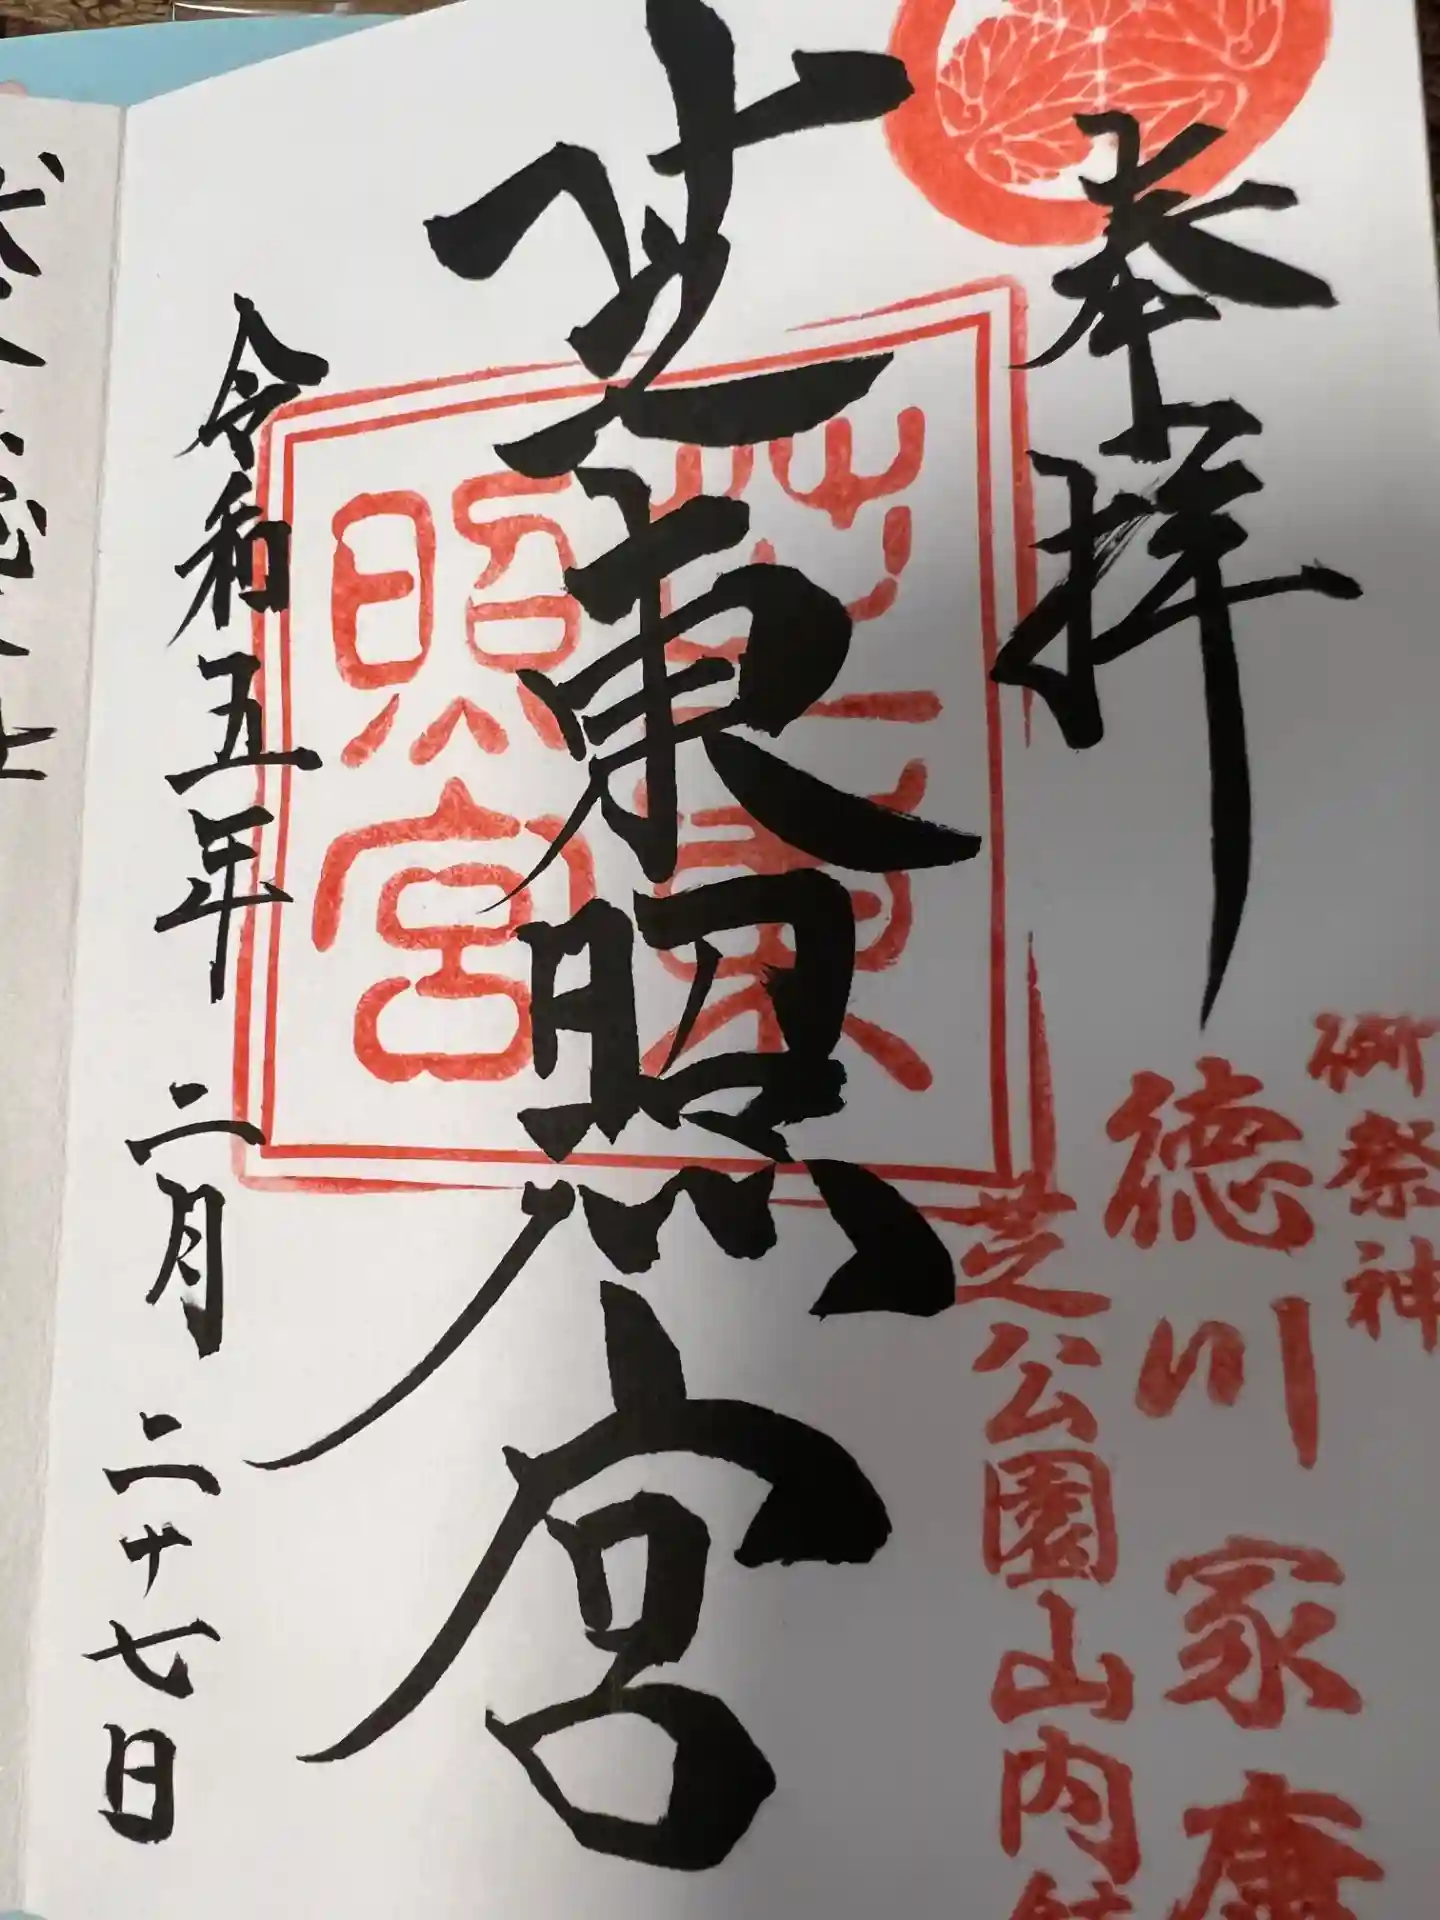 奉拝
御祭神
徳川家康
芝公園山内
芝東照宮
芝東照宮
令和五年二月二十七日